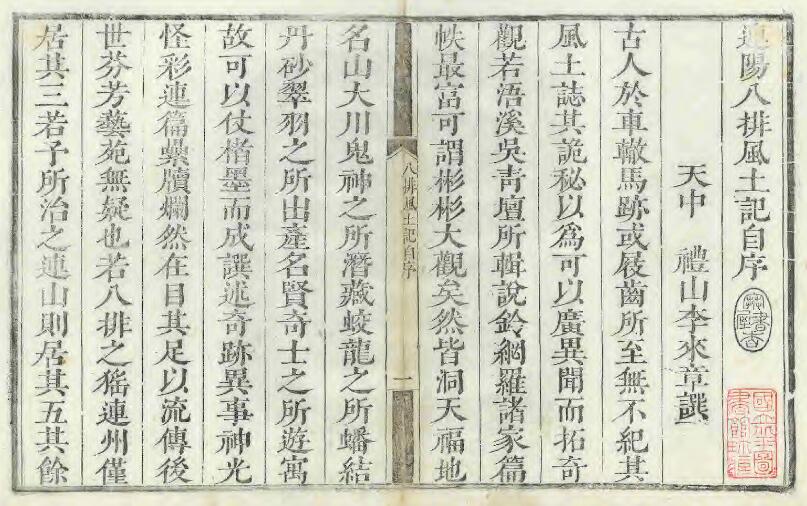 連陽八排風土記自序
天中　禮山李來章譔
古人於車轍馬跡或屐齒所至無不紀其
風土誌其詭秘以為可以廣異聞而拓奇
觀若浯溪吳靑壇所輯說鈴網羅諸家篇
帙最富可謂彬彬大觀矣然皆洞天福地
八排風土記自序
一
名山大川鬼神之所潛藏蛟龍之所蟠結
丹砂翠羽之所出產名賢奇士之所遊寓
故可以仗楮墨而成譔述奇跡異事神光
怪彩連篇纍牘爛然在目其足以流傳後
世芬芳藝苑無疑也若八排之猺連州僅
居其三若予所治之連山則居其五其餘